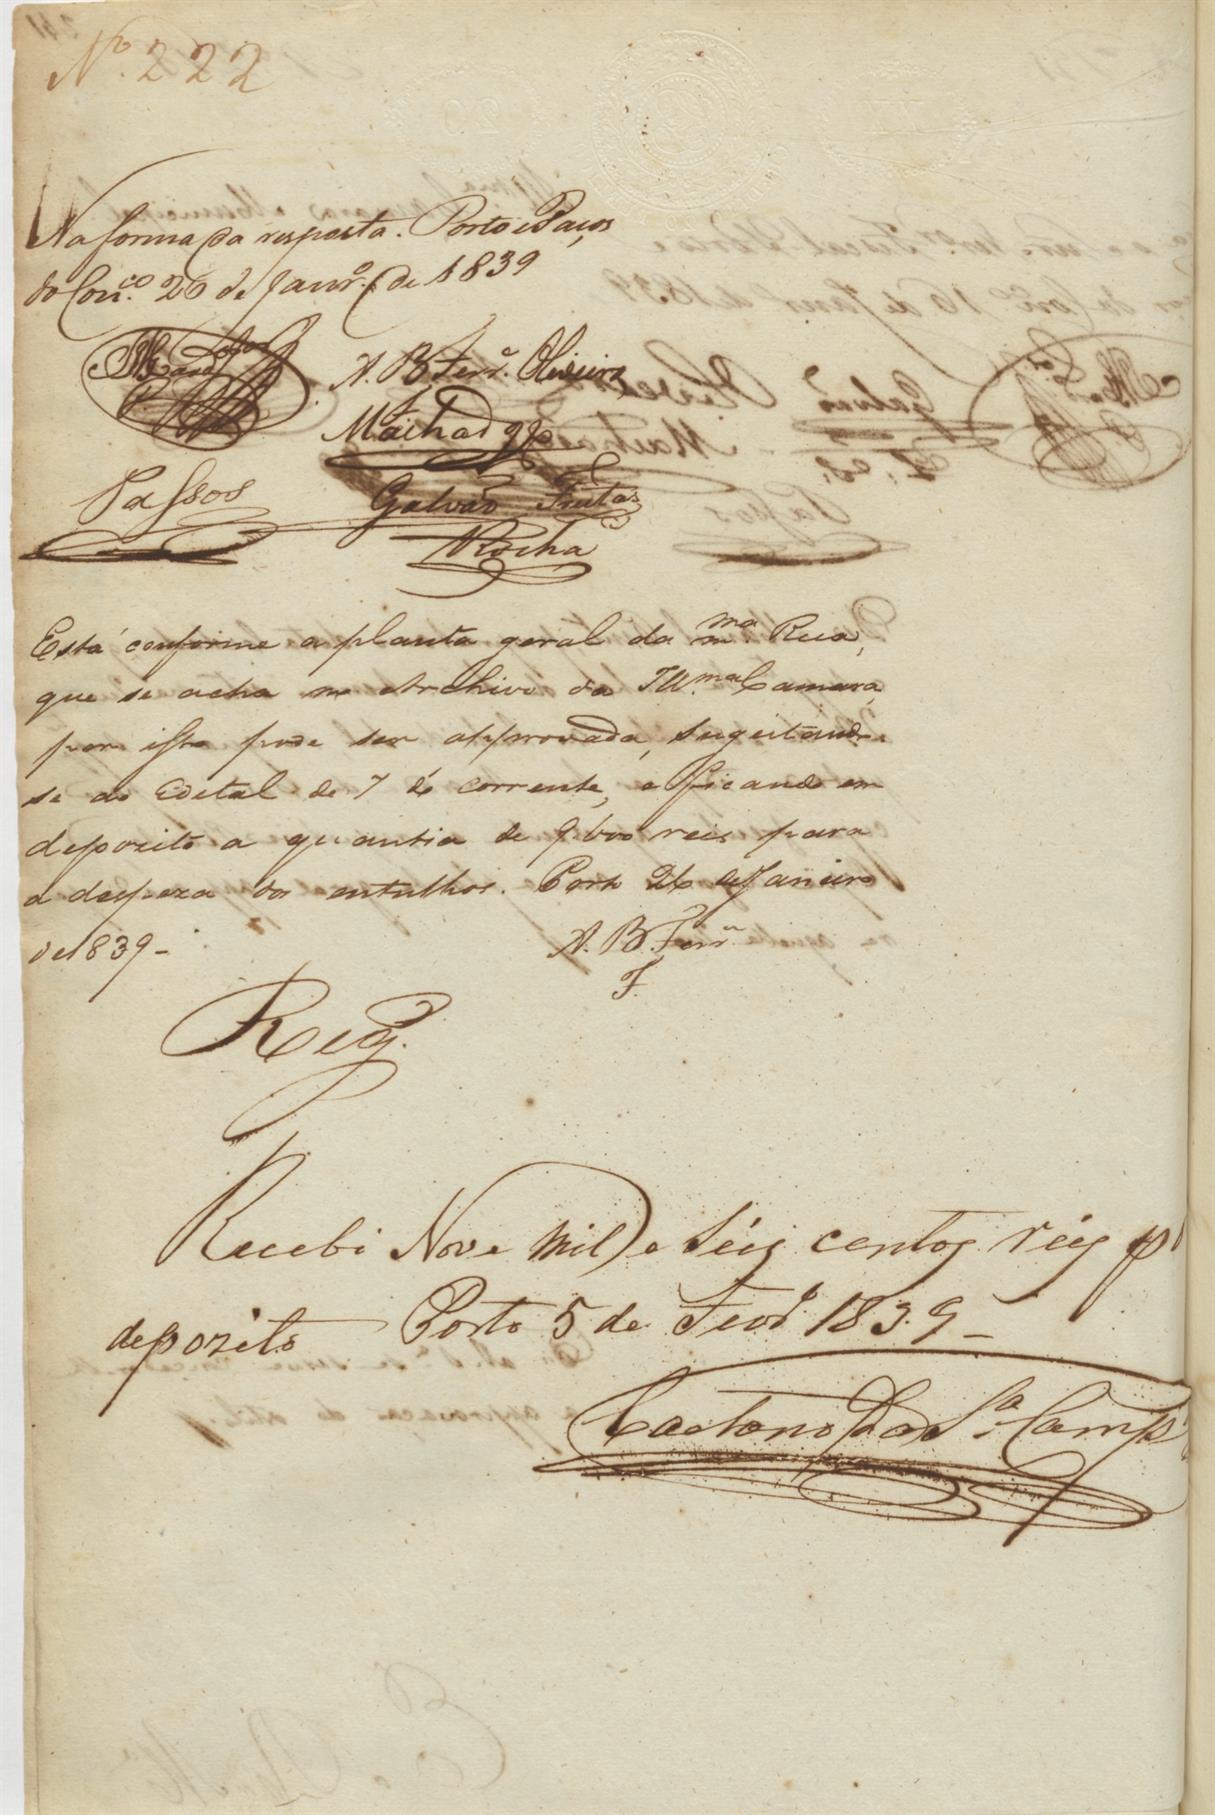 Nº. 222
Na forma da resposta. Porto e Paços
do Conc.º 26 de Janr.º de 1839
A. B. Ferr.ª Oliveira
Machado
Passos Galvão Freitas
Rocha
Está conforme a planta geral da m.ma Rua,
que se acha no Archivo da Ill.ma Camara,
por isso pode ser approvada, sugeitando
se ao Edital de 7 do corrente, e ficando em
depozito a quantia de 9600 reis para
a despeza dos entulhos. Porto 26 de Janeiro
de 1839 -
A. B. Ferr.ª
F.
Reg.
Recebi Nove mil e séis centos réis p
depozito Porto 5 de Fevr.º 1839 -
Caetano da S.ª Camp